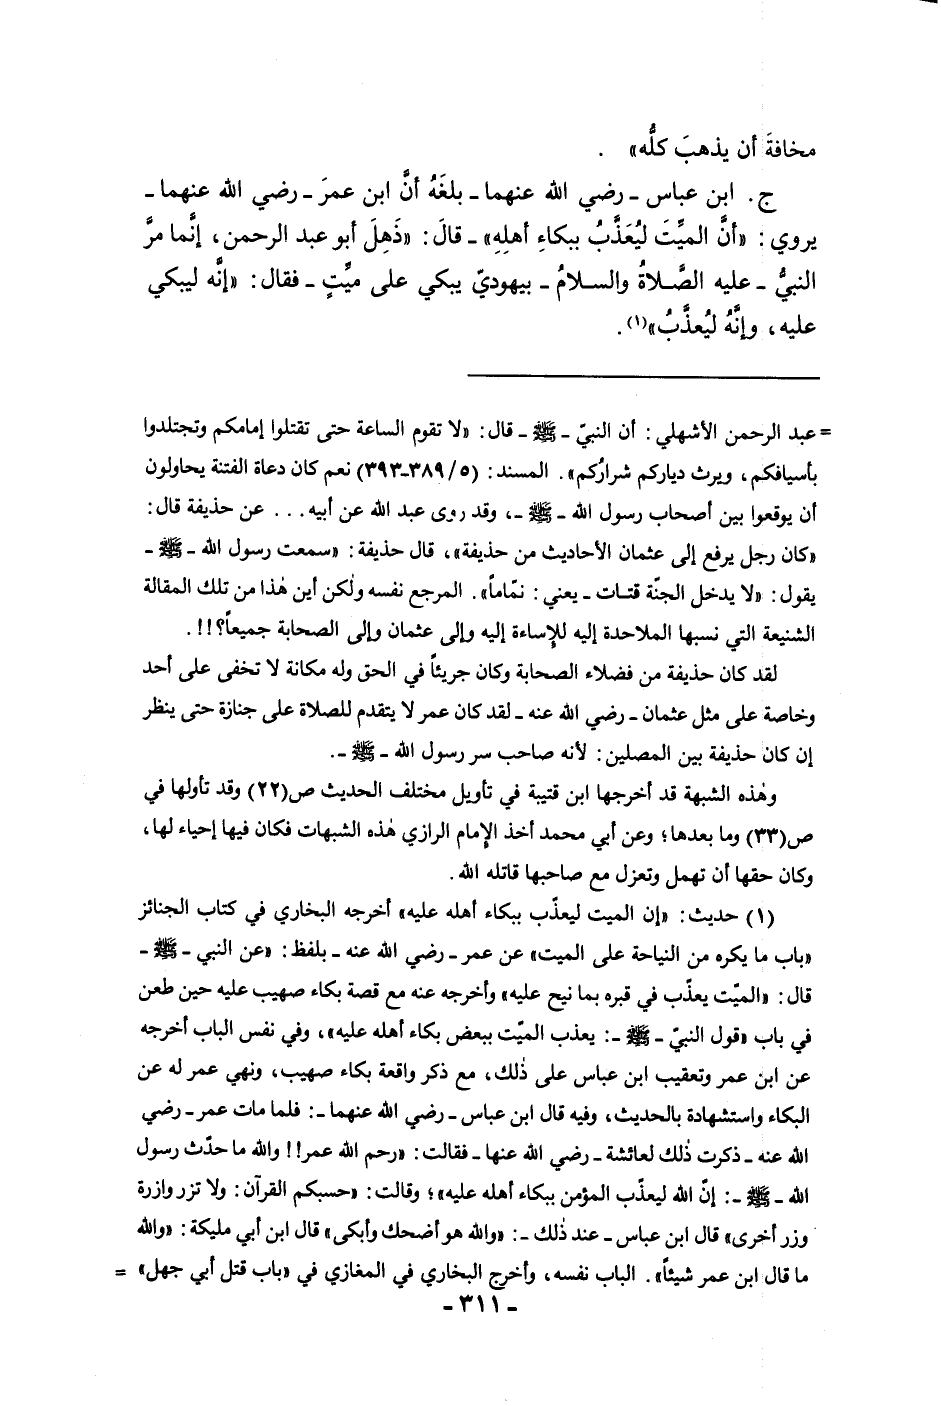 مخافةَ أن يذهبَ كلُّه» .
ج. ابن عباس ـ رضي الله عنهما ـ بلغَهُ أنَّ ابن عمرَ ـ رضي الله عنهما ـ
يروي: «أنَّ الميِّتَ ليُعَذَّبُ ببكاءِ أهلِهِ» ـ قالَ: «ذَهِلَ أبو عبد الرحمن، إنَّما مرَّ
النبيُّ ـ عليه الصَّلاةُ والسلامُ ـ بيهوديّ يبكي على ميِّتٍ ـ فقال: «إنَّه ليبكي
عليه، وإنَّهُ ليُعذَّبُ»(١).
= عبد الرحمن الأشهلي: أن النبيّ ـ ﷺ ـ قال: «لا تقوم الساعة حتى تقتلوا إمامكم وتجتلدوا
بأسيافكم، ويرث دياركم شرارُكم». المسند: (٥/ ٣٨٩ـ٣٩٣) نعم كان دعاة الفتنة يحاولون
أن يوقعوا بين أصحاب رسول الله ـ ﷺ ـ، وقد روى عبد الله عن أبيه... عن حذيفة قال:
«كان رجل يرفع إلى عثمان الأحاديث من حذيفة»، قال حذيفة: «سمعت رسول الله ـ ﷺ ـ
يقول: «لا يدخل الجنّة قتات ـ يعني: نمّاماً». المرجع نفسه ولٰكن أين هٰذا من تلك المقالة
الشنيعة التي نسبها الملاحدة إليه للإساءة إليه وإلى عثمان وإلى الصحابة جميعاً؟!!.
لقد كان حذيفة من فضلاء الصحابة وكان جريئاً في الحق وله مكانة لا تخفى على أحد
وخاصة على مثل عثمان ـ رضي الله عنه ـ لقد كان عمر لا يتقدم للصلاة على جنازة حتى ينظر
إن كان حذيفة بين المصلين: لأنه صاحب سر رسول الله ـ ﷺ ـ.
وهٰذه الشبهة قد أخرجها ابن قتيبة في تأويل مختلف الحديث ص(٢٢) وقد تأولها في
ص(٣٣) وما بعدها؛ وعن أبي محمد أخذ الإمام الرازي هٰذه الشبهات فكان فيها إحياء لها،
وكان حقها أن تهمل وتعزل مع صاحبها قاتله الله.
(١) حديث: «إن الميت ليعذّب ببكاء أهله عليه» أخرجه البخاري في كتاب الجنائز
«باب ما يكره من النياحة على الميت» عن عمر ـ رضي الله عنه ـ بلفظ: «عن النبي ـ ﷺ ـ
قال: «الميّت يعذّب في قبره بما نيح عليه» وأخرجه عنه مع قصة بكاء صهيب عليه حين طعن
في باب «قول النبيّ ـ ﷺ ـ: يعذب الميّت ببعض بكاء أهله عليه»، وفي نفس الباب أخرجه
عن ابن عمر وتعقيب ابن عباس على ذٰلك، مع ذكر واقعة بكاء صهيب، ونهي عمر له عن
البكاء واستشهادة بالحديث، وفيه قال ابن عباس ـ رضي الله عنهما ـ: فلما مات عمر ـ رضي
الله عنه ـ ذكرت ذٰلك لعائشة ـ رضي الله عنها ـ فقالت: «رحم الله عمر!! والله ما حدّث رسول
الله ـ ﷺ ـ: إنّ الله ليعذّب المؤمن ببكاء أهله عليه»؛ وقالت: «حسبكم القرآن: ولا تزر وازرة
وزر أخرى» قال ابن عباس ـ عند ذٰلك ـ: «والله هو أضحك وأبكى» قال ابن أبي مليكة: «والله
ما قال ابن عمر شيئاً». الباب نفسه، وأخرج البخاري في المغازي في «باب قتل أبي جهل» =
ـ ٣١١ ـ